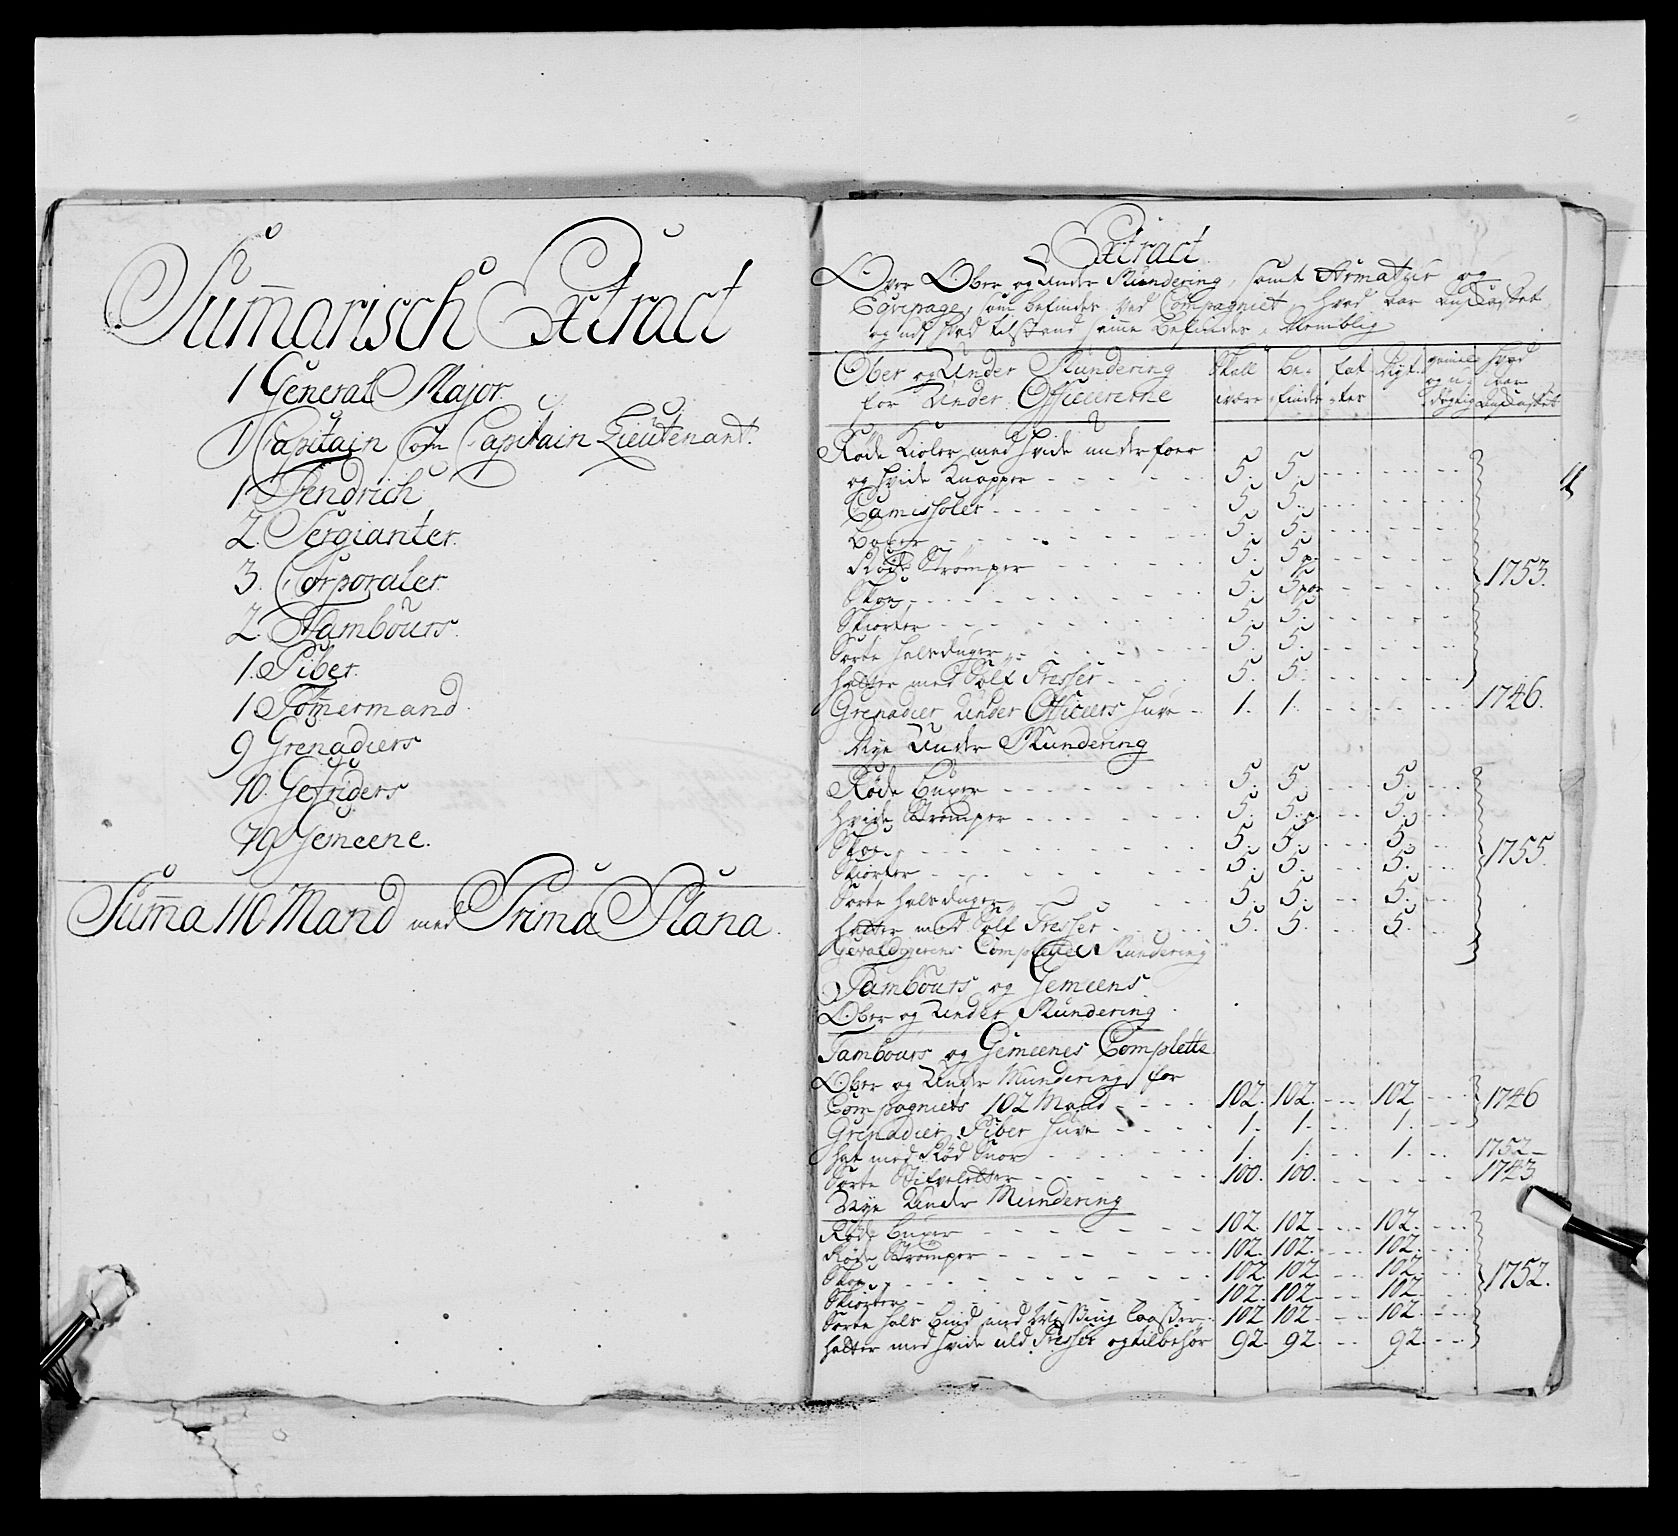 Summarisch Extract
1 General Major
1 Capitain som Capitain Lieutenant.
1 Fendrich
2. Sergianter.
3. Corporaler.
2. Tambours.
1. Piber.
1 Tømermand.
9 Grenadiers
10. Gefriders
79 Gemeene.
Summa 110 Mand med Prima Plana.
Extract
Over Ober og Under Mundering, samt Armatur og
Eqvipage, som befindes ved Compagniet, hvad Aar
og udj hvad tilstand samme befindes, Nemblig
Ober og Under Mundering for Under Officererne | Skall være | Befindes | fattes | Nyt. | gammelt og u-dygtig | hvad Aar
Røde Kioler med hvide underfoer
og hvide Knapper - - - 5. 5. - - -
Camisholer - - - 5. 5. - - -
Buxer - - - 5. 5. - - -
Røde Strømper - - - 5. 5 p. - - - 1753.
Skoe - - - 5. 5 par - - -
Skiorter - - - 5. 5. - - -
Sorte halsduger - - - 5. 5. - - -
hatter med Sølf Tresser - - - 5. 5. - - -
Grenadier Under Officiers huve - 1. 1. - - - 1746.
Nye Under Mundering
Røde Buxer - - - 5. 5. - - 5. - -
hvide Strømper - - - 5. 5. p. - - 5. - -
Skoe - - - 5. 5. - - 5. - - 1755.
Skiorter - - - 5. 5. - - 5. - -
Sorte halsduger - - - 5. 5. - - 5. - -
hatter med Sølf Tresser - - - 5. 5. - - 5. - -
Complette Mundering
Tambours og Gemeens
Ober og Under Mundering.
Tambours og Gemeenes Complette
Ober og Under Mundering for
Compagniets 102 Mand - - - 102. 102. - - 102 - - 1746
Grenadier Piber huve - - - 1. 1. - - 1. - -
hat med Rød Snor - - - 1. 1. - - 1. - - 1752 -
Sorte Stifveletter - - - 100. 100. - - - 1743
Nye Under Mundering
Røde Buxer - - - 102. 102. - - 102. - -
Røde Strømper - - - 102. 102. - - 102. - -
Skoe - - - 102. 102. - - 102. - - 1752.
Skiorter - - - 102. 102. - - 102. - -
Sorte hals Bind med Messing Laaßer - 102 102 - - 102 - -
hatter med hvide uld Tresser og tilbehør 92. 92. - - 92 - -